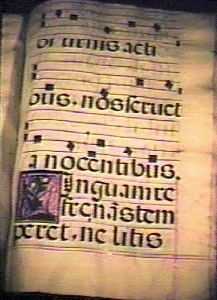 diurnis acti
bus, nos seruet
a nocentibus.
Linguam re
frenãs tem
peret, ne litis